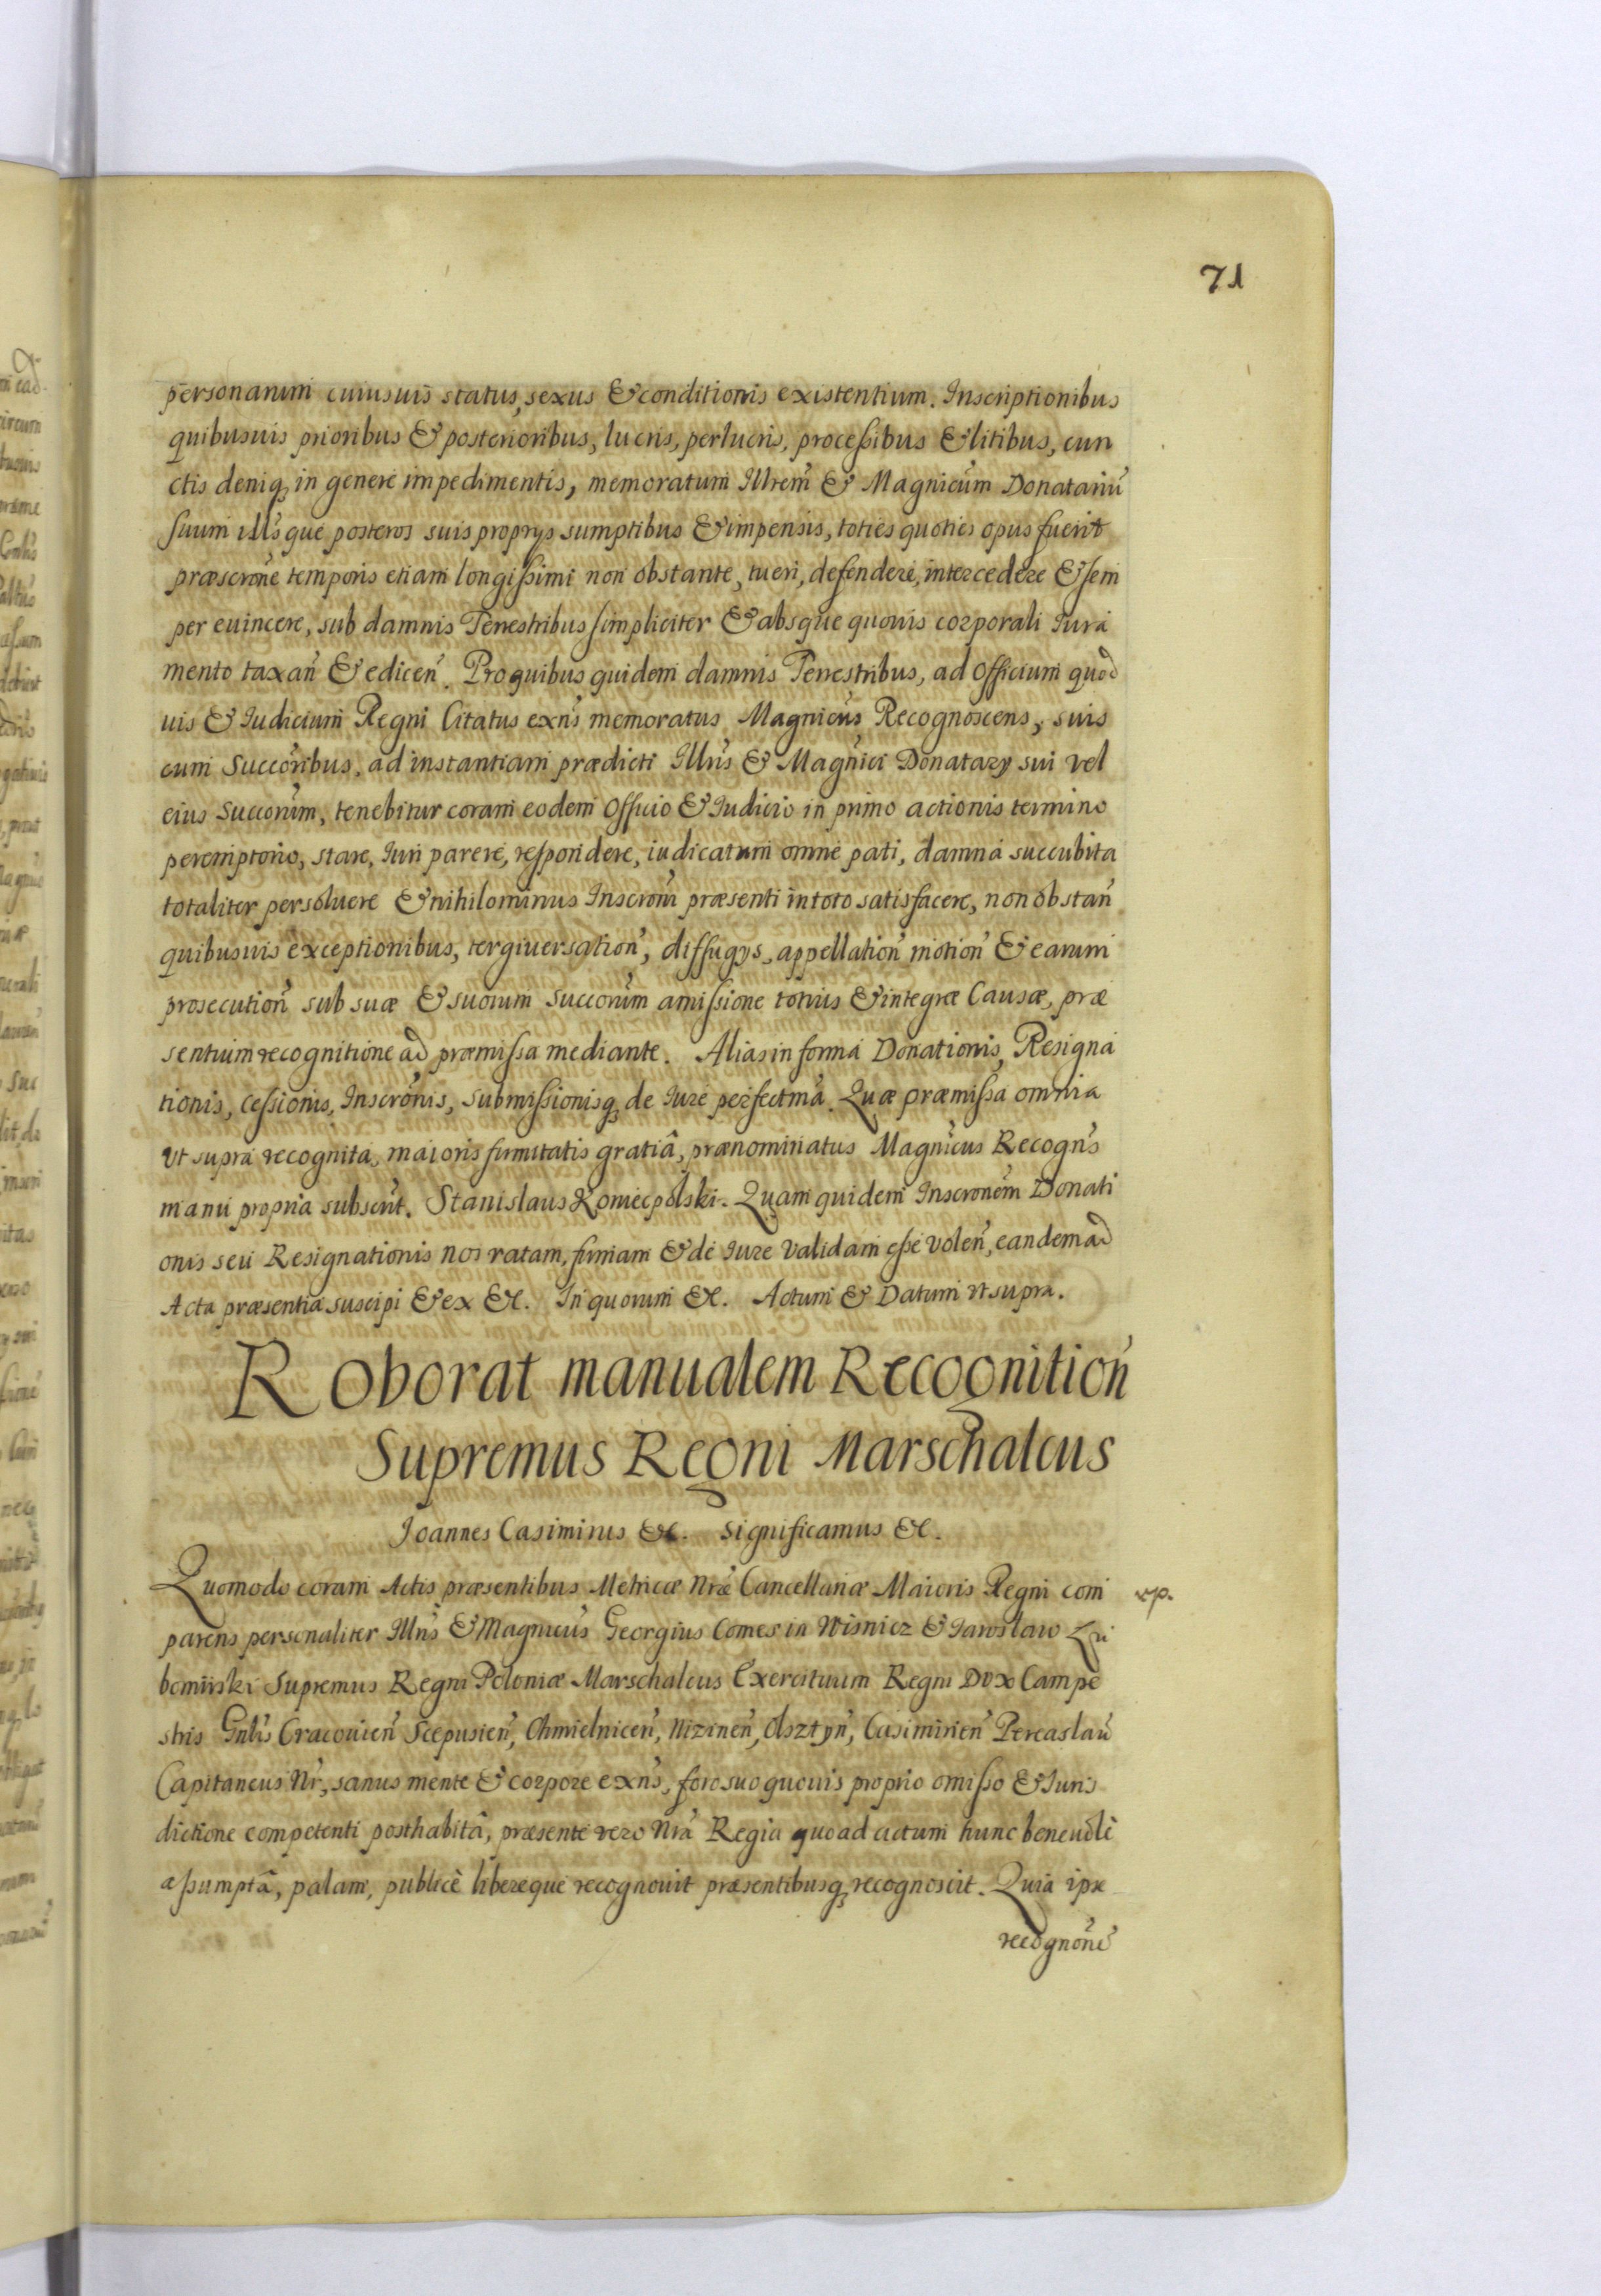 71
personarum cuiusuis status, sexus & conditionis existentium. Inscriptionibus
quibusuis prioribus & posterioribus, lucris, perlucris, processibus & litibus, cun
ctis deniq, in genere impedimentis, memoratum Illrem & Magnicum Donatariu
suum illsque posteros suis proprys sumptibus & impensis, toties quoties opus fuerit
præscrone temporis etiam longissimi non obstante, tueri, defendere, intercedere & sem
per euincere, sub damnis Terrestribus simpliciter & absque quouis corporali Iura
mento taxan & edicen. Pro quibus quidem damnis Terrestribus, ad Officium quod
uis & Iudicium Regni Citatus exns memoratus Magnicus Recognoscens, suis
cum Succoribus, ad instantiam prædicti Illris & Magnici Donatary sui vel
eius Succorum, tenebitur coram eodem Officio & Iudicio in primo actionis termino
peremptorio, stare, Iuri parere, respondere, iudicatum omne pati, damna succubita
totaliter persoluere & nihilominus Inscroni præsenti in toto satisfacere, non obstan
quibusuis exceptionibus, tergiuersation, diffugys, appellation motion & earum
prosecution sub suæ & suorum Succorum amissione totius & integræ Causæ, præ
sentium recognitione ad præmissa mediante. Alias in forma Donationis, Resigna
tionis, Cessionis, Inscronis, submissionisq, de Iure perfectma. Quæ præmissa omnia
vt supra recognita, maioris firmitatis gratiâ, prænominatus Magnicus Recogns
manu propria subscrit. Stanislaus Koniecpolski. Quam quidem Inscronem Donati
onis seu Resignationis nos ratam, firmam & de Iure validam esse volen, eandem ad
Acta præsentia suscipi & ex &c. In quorum &c. Actum & Datum vt supra.
Roborat manualem Recognition
Supremus Regni Marschalcus
Ioannes Casimirus &c. Significamus &c.
Quomodo coram Actis præsentibus Metricæ Nræ Cancellariæ Maioris Regni com
parens personaliter Illris & Magnicus Georgius Comes in Wisnicz & Iaroslaw Lu
bomirski Supremus Regni Poloniæ Marschalcus Exercituum Regni Dux Campe
stris Gnlis Cracouien Scepusien, Chmielnicen, Nizinen, Olsztyn, Casimirien Pereaslau
Capitaneus Nr, sanus mente & corpore exns, foro suo quouis proprio omisso & Iuris
dictione competenti posthabitâ, præsente vero Nra Regia quoad actum hunc beneuole
assumptâ, palam, publicè libereque recognouit præsentibusq, recognoscit. Quia ipse
recognone